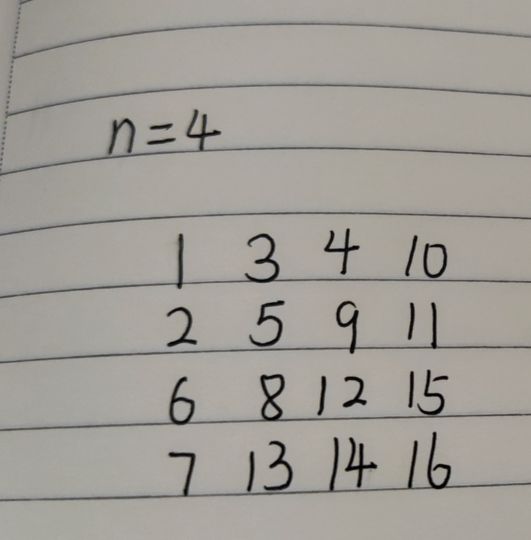 n=4
1 3 4 10
2 5 9 11
6 8 12 15
7 13 14 16